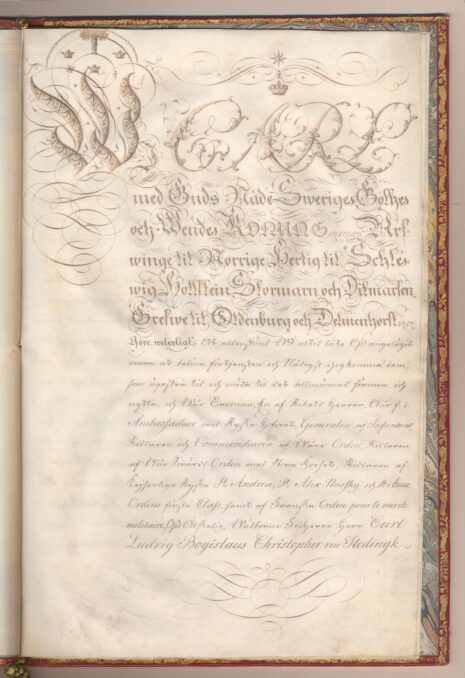 Wi CARL
med Guds Nåde Sweriges Göthes
och Wendes KONUNG Arf-
winge til Norrige Hertig til Schles-
wig Hollstein, Stormarn och Ditmarsen,
Grefwe til Oldenburg och Delmenhorst
Göre weterligt, at aldenstund Wi altid låtit Oß angelägit
wara at belöna förtjensten och Nådigst ihogkomma dem,
som upofra sig och möda til det allmännas fromma och
nytta, och Wår Troman, En af Rikets Herrar, Wår f.d.
Ambassadeur wid Ryska Hofwet, Generalen af Infanteriet
Riddaren och Commendeuren af Wåra Orden, Riddaren
af Wår Swärds Orden med Stora Korset, Riddaren af
Kejserliga Ryska St Andreæ, St Alex. Newsky och St Anna
Ordens första Class, samt af Franska Orden pour le merite
militaire, Wälborne Friherre Herr Curt
Ludvig Bogislaus Christopher von Stedingk